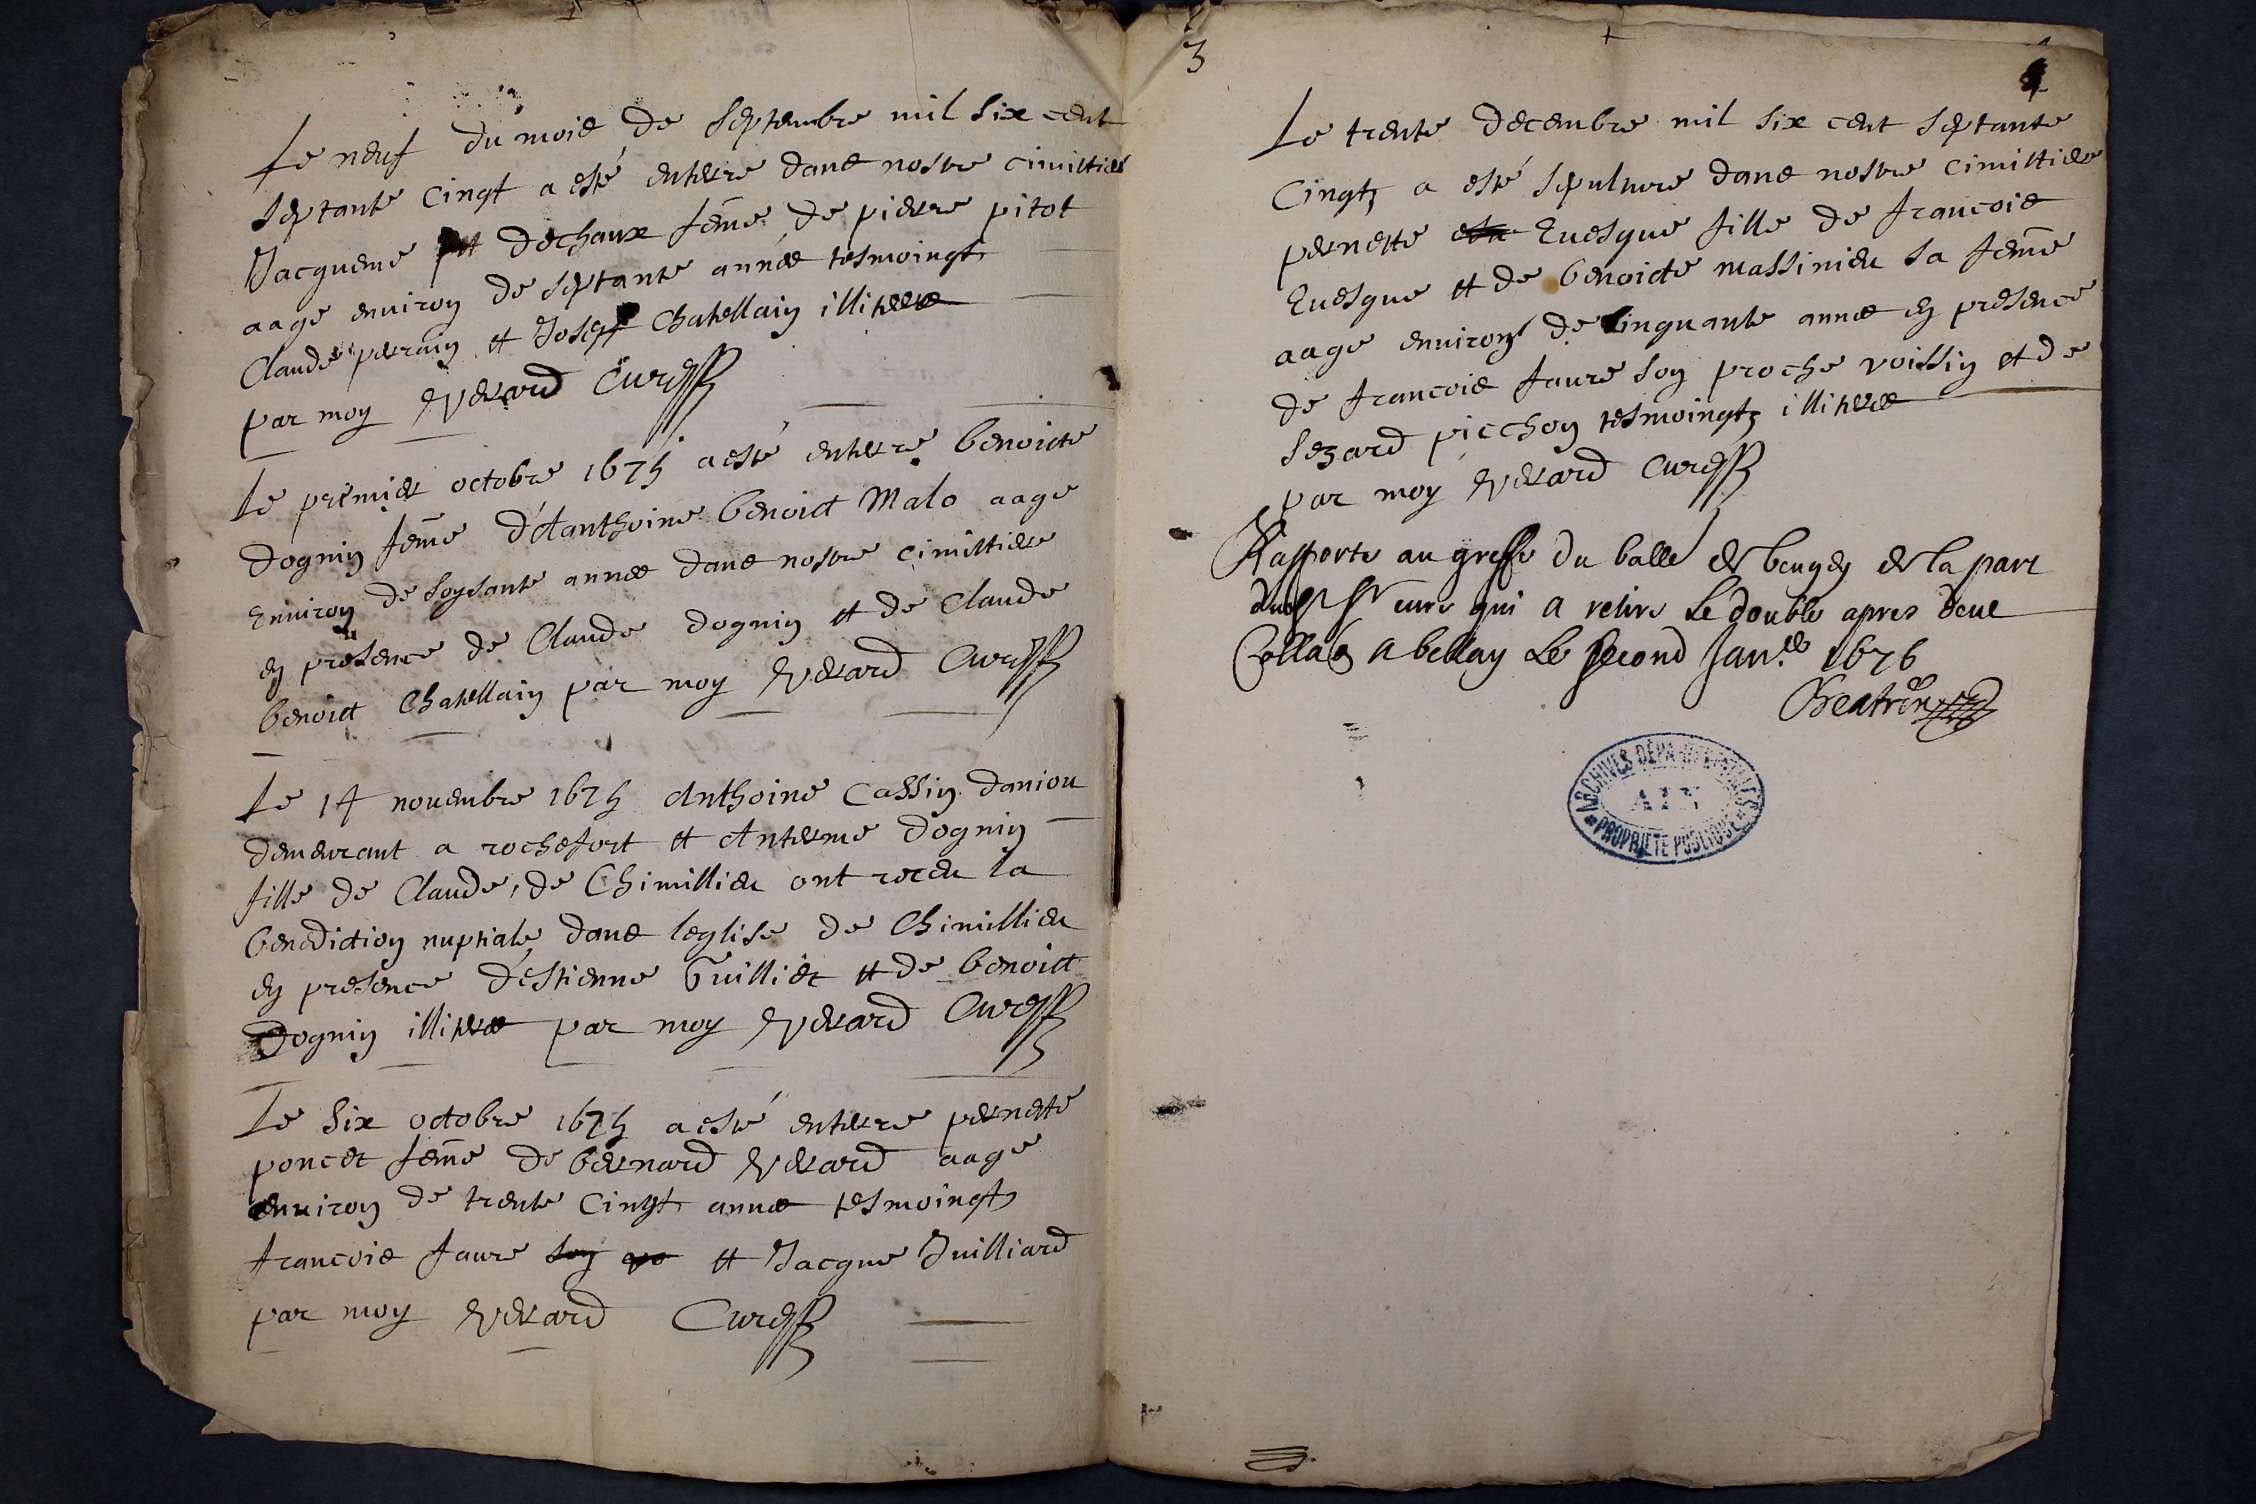 Le neuf du mois de septembre mil six cent
septante cingt a esté enterre dans nostre cimittiere
Jacqueme dechaux feme de pierre pitot
aage environ de septante années tesmoingts
Claude perrain et Joseph Chatellain illiteres
par moy Everard Cure
Le premier octobre 1675 a esté enterre benoicte
dognin feme d'Anthoine benoict Malo aage
Environ de soysante annees dans nostre cimittiere
en presence de Claude dognin et de Claude
benoict Chatellain par moy Everard Cure
Le 14 novembre 1675 Anthoine Cassin daniou
demeurant a rochefort et Anterme dognin
fille de Claude, de Chimillieu ont receu la
benediction nuptiale dans leglise de Chimillieu
en presence d'estienne Guilliet et de benoict
Dognin illiteres par moy Everard Cure
Le six octobre 1675 a esté enterre pernette
poncet feme de bernard Everard aage
environ de trente cingt annes tesmoingts
francois faure et Jacque Juilliard
par moy Everard Cure
3
Le trente decembre mil six cent septante
Cingt a esté sepulture dans nostre cimittiere
pernette Evesque fille de francois
Evesque et de benoicte massinieu sa feme
aage environ de cinquante annes en presence
de francois faure son proche voissin et de
sezard picchon tesmoingts illiteres
par moy Everard Cure
Rapporte au greffe du balle de beugey de la part
dud Sr cure qui a retire Le double apres deue
Colla&#8203;on A bellay Le second Jan.er 1676
ARCHIVES DÉPARTEMENTALES
AIN
PROPRIÉTÉ PUBLIQUE